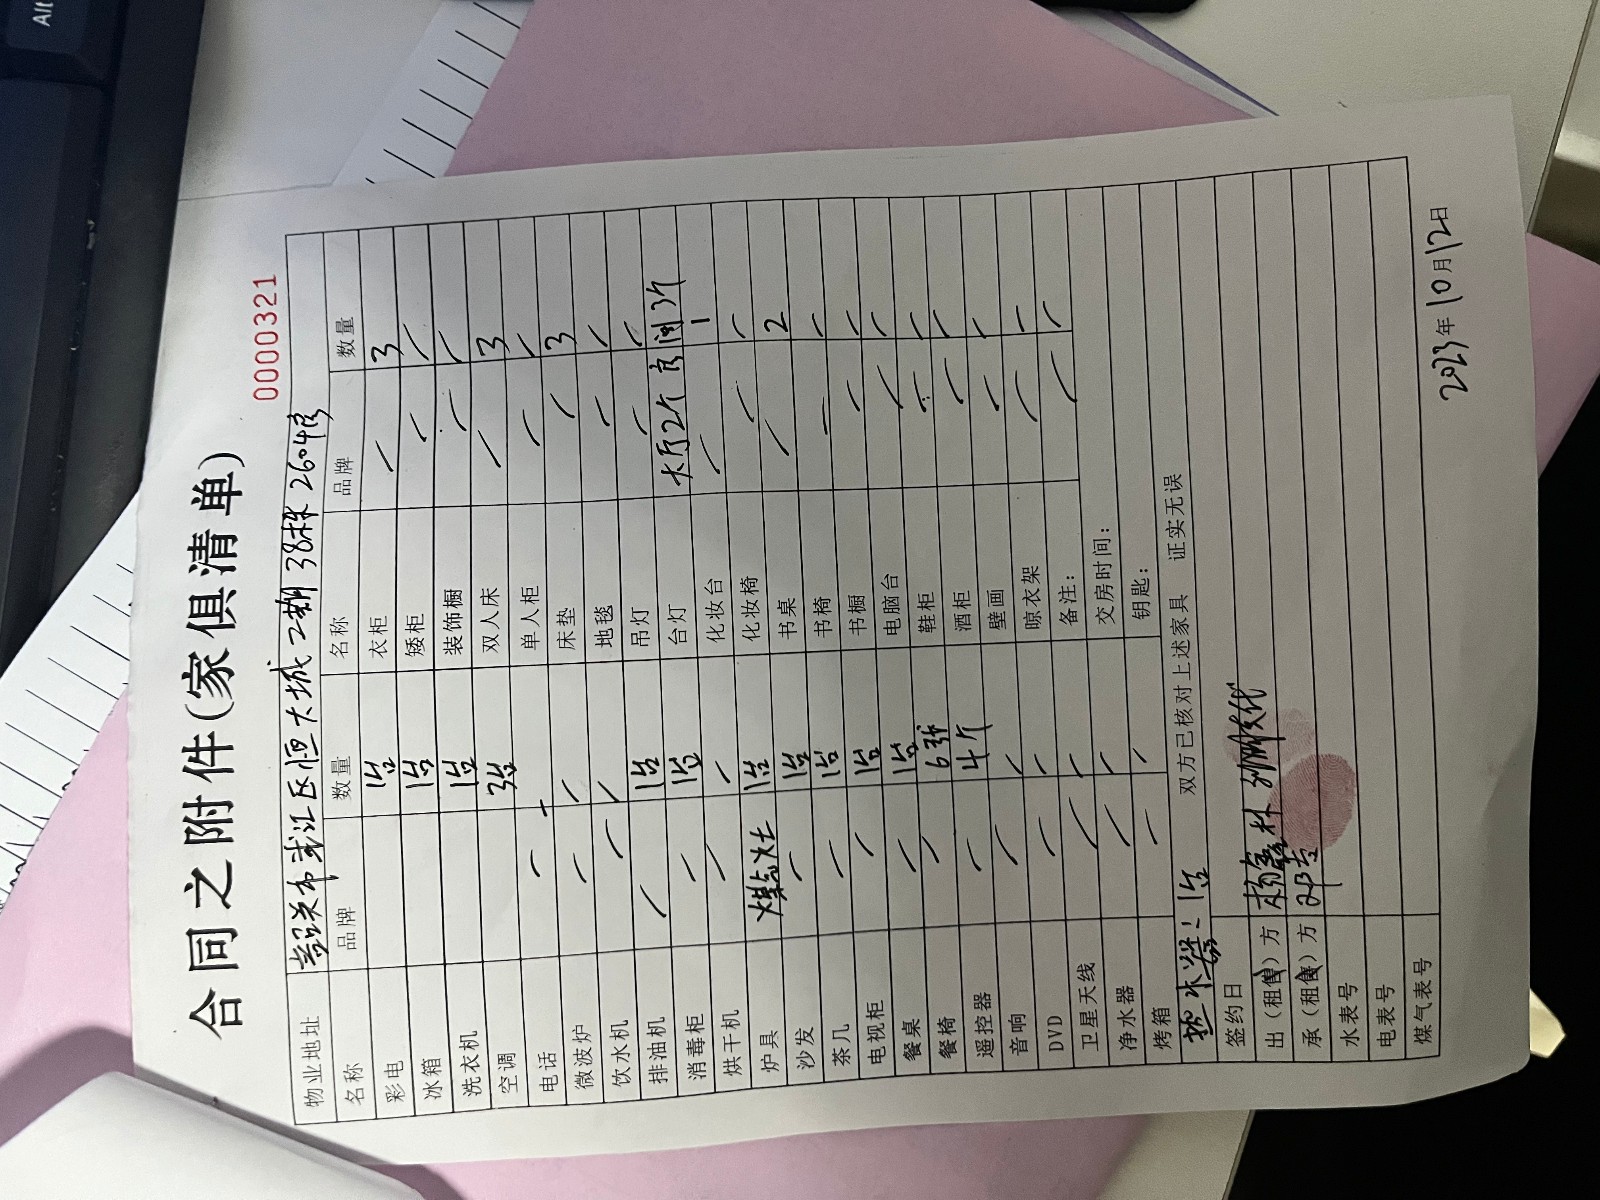 合同之附件(家俱清单)
0000321
物业地址 韶关市武江区恒大城二期38栋2604房
名称 品牌 数量 名称 品牌 数量
彩电 1台 衣柜 / 3
冰箱 1台 矮柜 / /
洗衣机 1台 装饰橱 / /
空调 3台 双人床 / 3
电话 / / 单人柜 / /
微波炉 / / 床垫 / 3
饮水机 / / 地毯 / /
排油机 / 1台 吊灯 / /
消毒柜 / 1台 台灯 大厅2个 房间3个
烘干机 / / 化妆台 / 1
炉具 煤气灶 1台 化妆椅 / /
沙发 / 1台 书桌 / 2
茶几 / 1台 书椅 / /
电视柜 / 1台 书橱 / /
餐桌 / 1台 电脑台 / /
餐椅 / 6张 鞋柜 / /
遥控器 / 4个 酒柜 / /
音响 / / 壁画 / /
DVD / / 晾衣架 / /
卫星天线 / / 备注:
净水器 / / 交房时间:
烤箱 / / 钥匙:
热水器：1台 双方已核对上述家具 证实无误
签约日
出(租售)方
承(租售)方
水表号
电表号
煤气表号
2023年10月12日
Alt